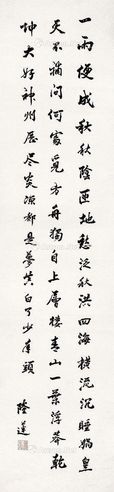 一雨便成秋秋陰匝地愁泛秋洪四海橫流沉睡媧皇
天不補問何處覓方舟獨自上層樓青山一葉浮莽乾
坤大好神州歷盡炎涼都是夢黃白了少年頭
隆蓮